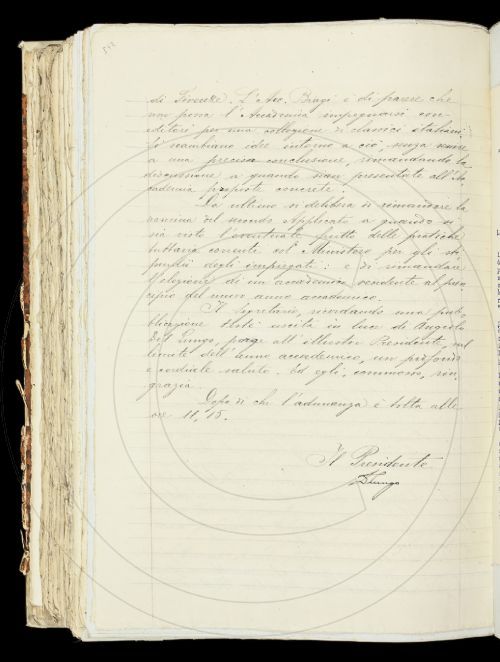 di Firenze. L'Acc. Biagi è di parere che
non possa l'Accademia impegnarsi con
editori per una collezione di classici italiani.
Si scambiano idee intorno a ciò, senza venire
a una precisa conclusione, rimandando la
discussione a quando sian presentate all'Ac-
cademia proposte concrete.
Da ultimo si delibera di rimandare la
nomina del secondo Applicato a quando si
sia visto l'eventuale frutto delle pratiche
tuttavia corrente col Ministero per gli sti-
pendii degli impiegati: e di rimandare
l'elezione di un accademico residente al prin-
cipio del nuovo anno accademico.
Il Segretario, ricordando una pub-
blicazione uscita in luce di Angiolo
Del Lungo, porge all'illustre Presidente, sul
finire dell'anno accademico, un profondo
e cordiale saluto. Ed egli, commosso, rin-
grazia.
Dopo di che l'adunanza è tolta alle
ore 11,15.
Il Presidente